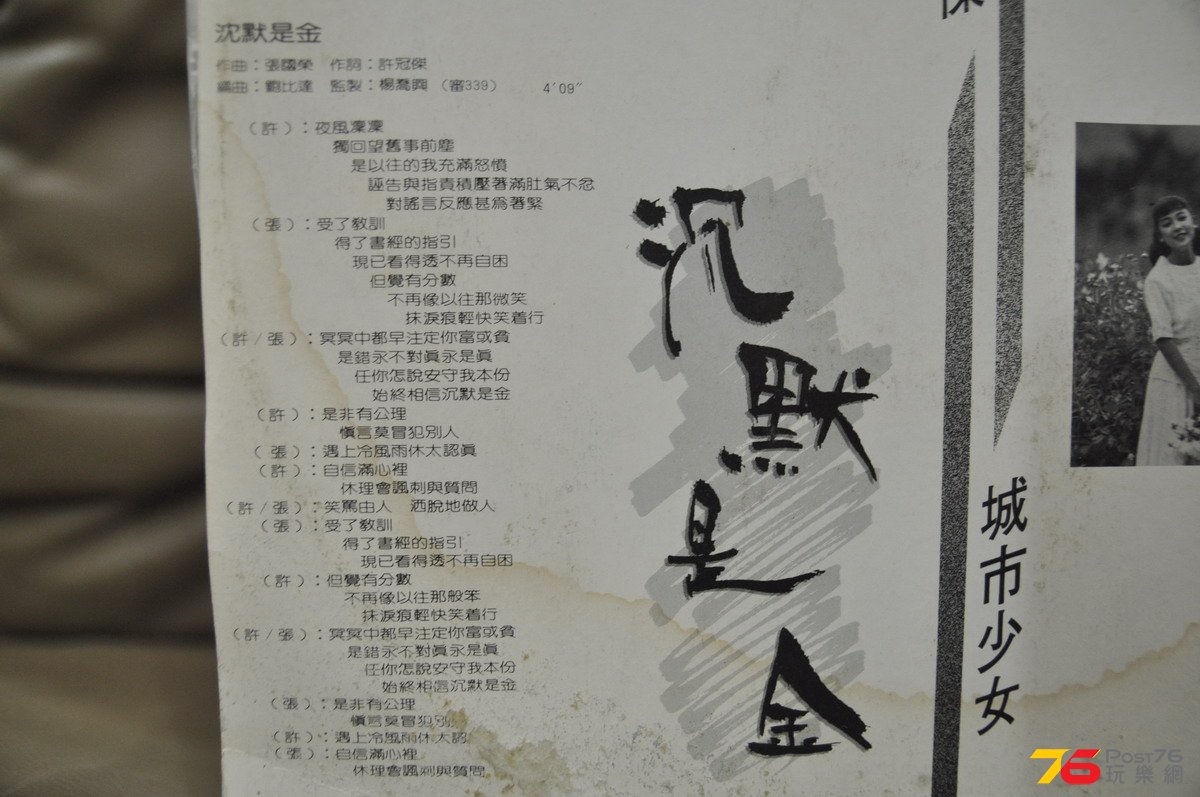 沈默是金
作曲：張國榮　作詞：許冠傑
編曲：鮑比達　監製：楊喬興（審339）　4'09"
（許）：夜風凜凜
獨回望舊事前塵
是以往的我充滿怒憤
誣告與指責積壓著滿肚氣不忿
對謠言反應甚為著緊
（張）：受了教訓
得了書經的指引
現已看得透不再自困
但覺有分數
不再像以往那微笑
抹淚痕輕快笑着行
（許/張）：冥冥中都早注定你富或貧
是錯永不對眞永是眞
任你怎說安守我本份
始終相信沉默是金
（許）：是非有公理
愼言莫冒犯別人
（張）：遇上冷風雨休太認眞
（許）：自信滿心裡
休理會諷刺與質問
（許/張）：笑罵由人　洒脫地做人
（張）：受了教訓
得了書經的指引
現已看得透不再自困
（許）：但覺有分數
不再像以往那般笨
抹淚痕輕快笑着行
（許/張）：冥冥中都早注定你富或貧
是錯永不對眞永是眞
任你怎說安守我本份
始終相信沉默是金
（張）：是非有公理
愼言莫冒犯別
（許）：遇上冷風雨休太認
（張）：自信滿心裡
休理會諷刺與質問
沉默是金
傑
城市少女
76 Post76
玩樂網